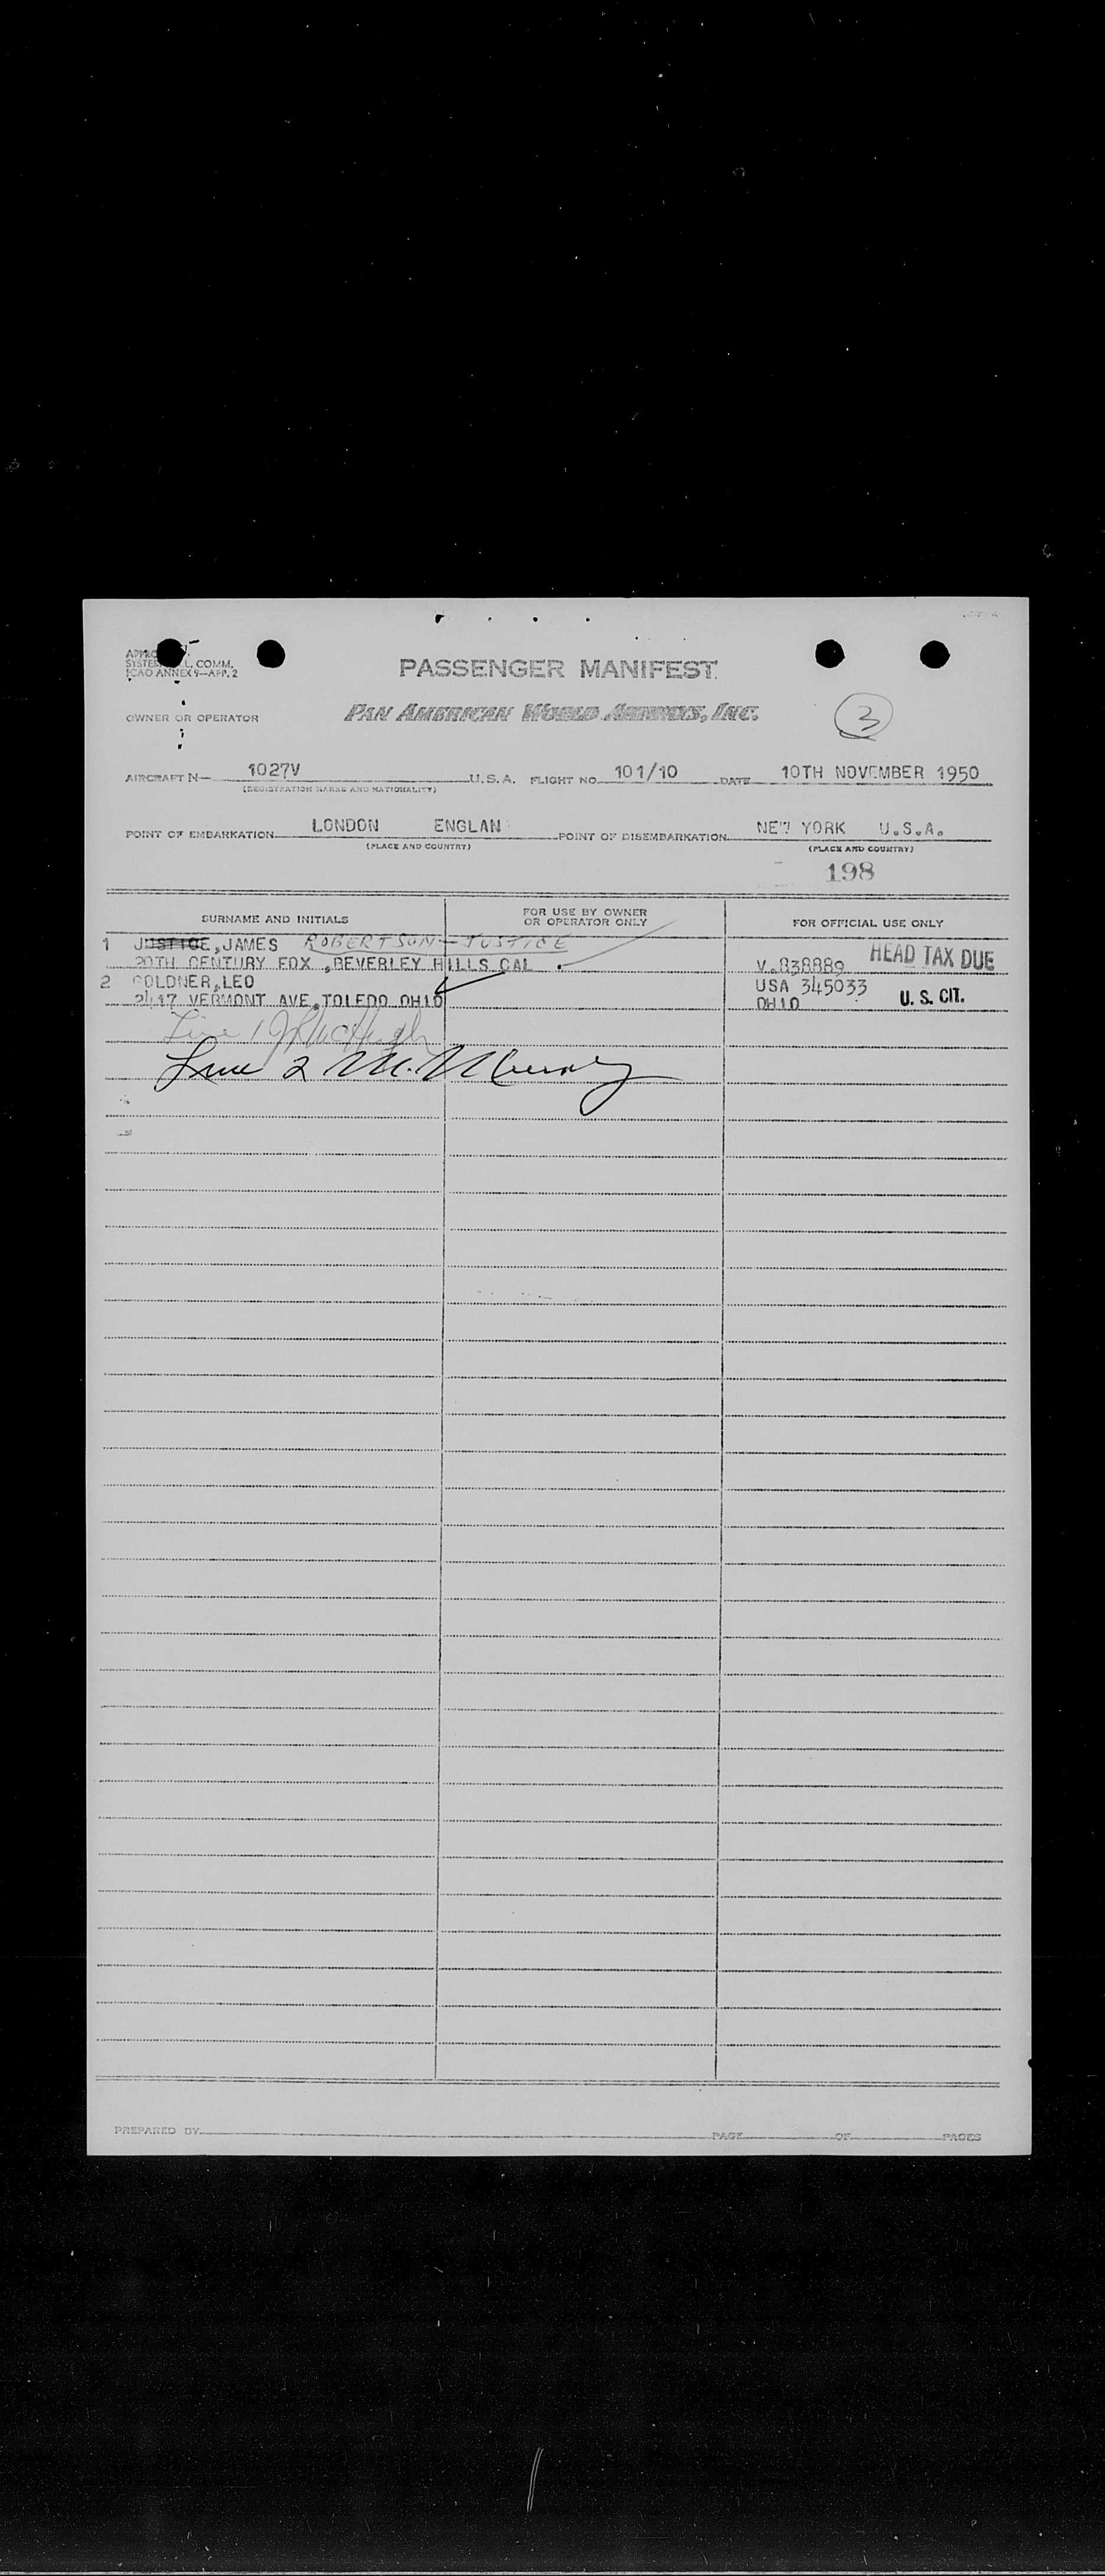 PASSENGER MANIFEST
SYSTEM L. COMM.
ICAO ANNEX 9—APP. 2
OWNER OR OPERATOR
PAN AMERICAN WORLD AIRWAYS, INC.
3
AIRCRAFT N— 1027V U.S.A. FLIGHT NO. 101/10 DATE 10TH NOVEMBER 1950
(REGISTRATION MARKS AND NATIONALITY)
POINT OF EMBARKATION LONDON ENGLAN POINT OF DISEMBARKATION NEW YORK U.S.A.
(PLACE AND COUNTRY) (PLACE AND COUNTRY)
198
SURNAME AND INITIALS FOR USE BY OWNER OR OPERATOR ONLY FOR OFFICIAL USE ONLY
1 JUSTICE,JAMES ROBERTSON-JUSTICE HEAD TAX DUE
20TH CENTURY FOX ,BEVERLEY HILLS CAL . V.838889
2 GOLDNER,LEO USA 345033
2417 VERMONT AVE,TOLEDO OHIO OHIO U.S. CIT.
Line 1
Line 2 M.
PREPARED BY PAGE OF PAGES